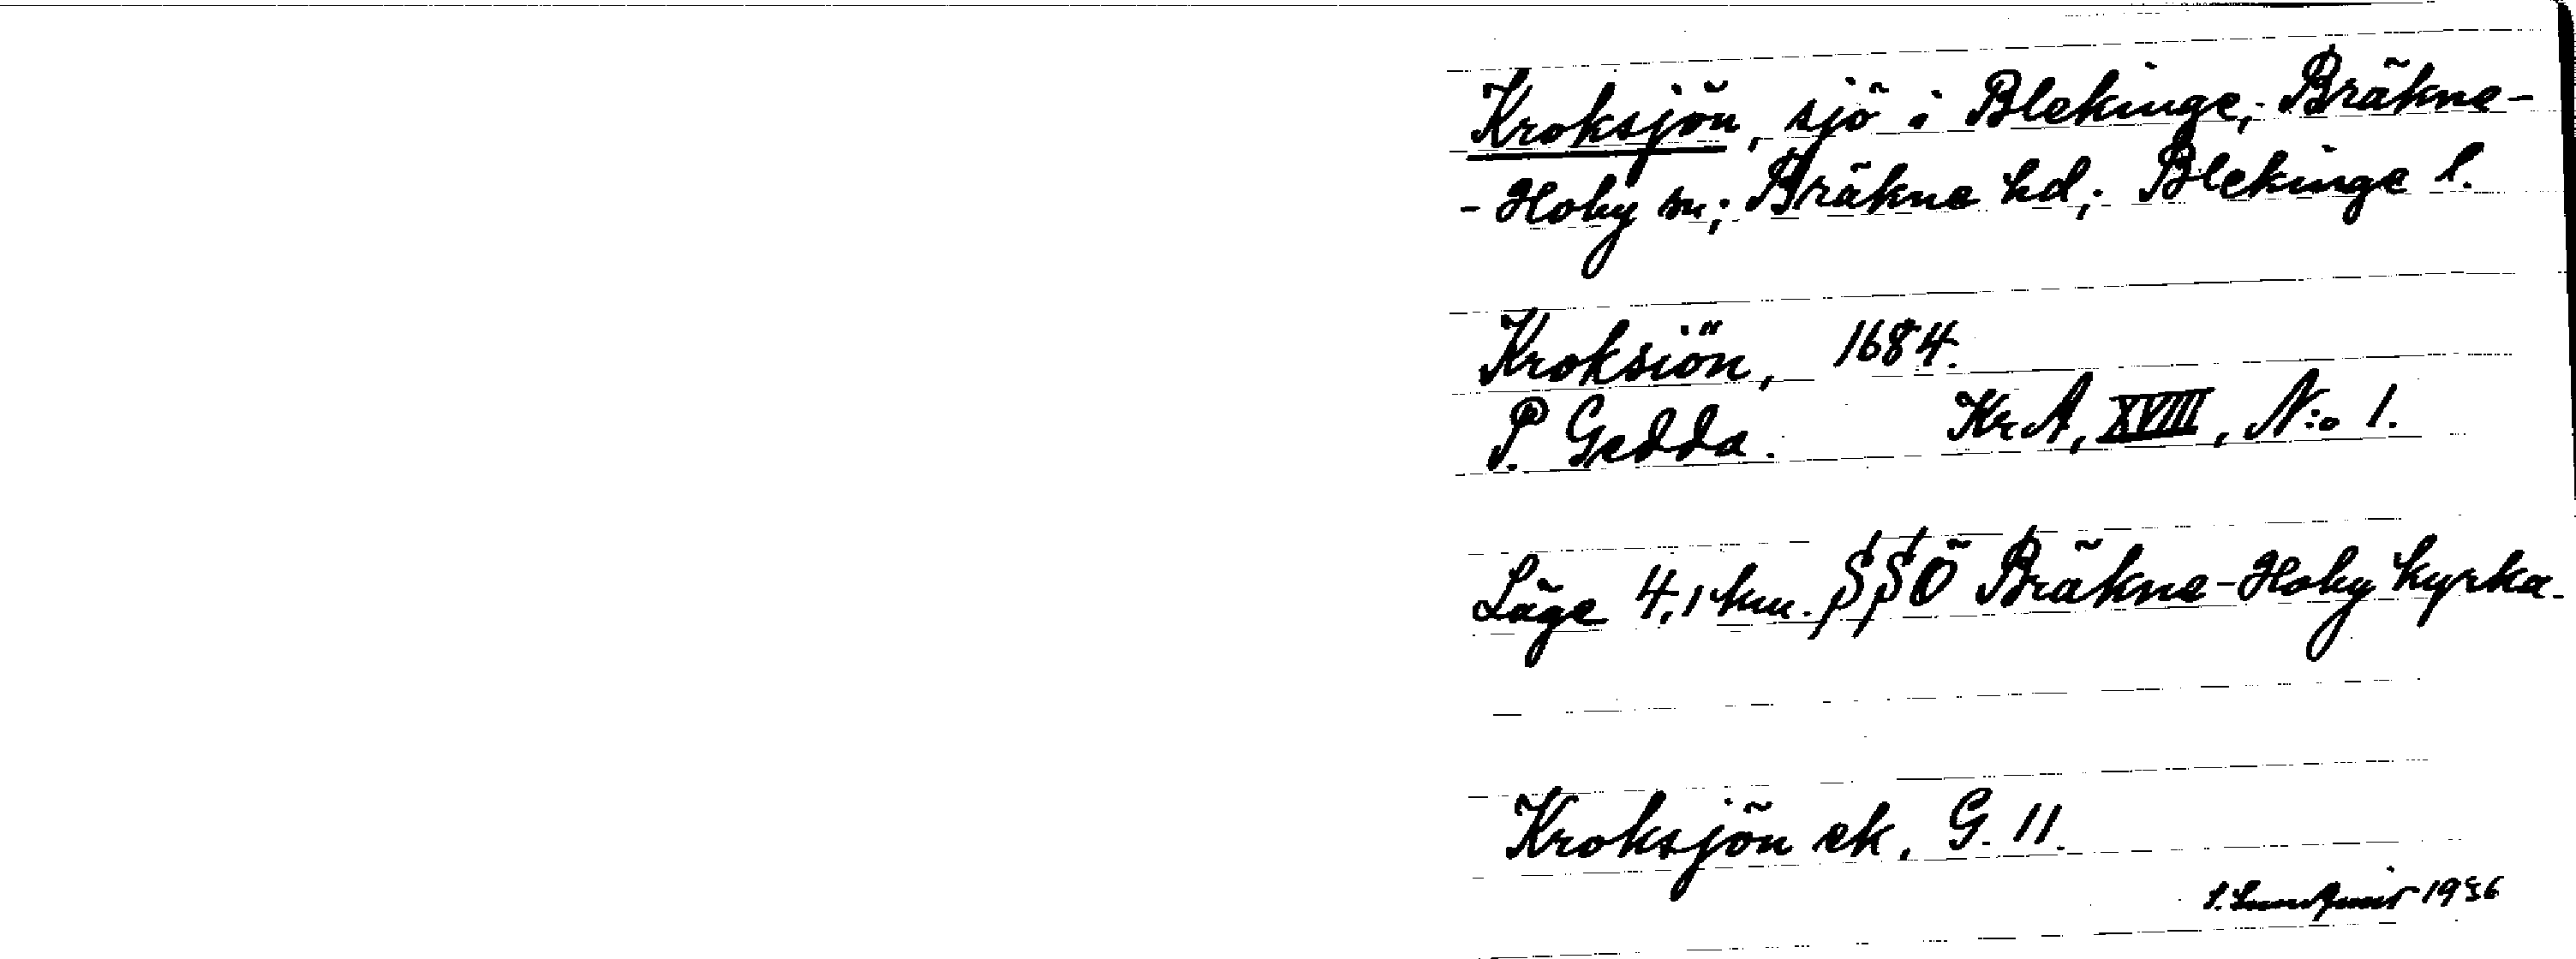 Kroksjön, sjö i Blekinge, Bräkne-
- Hoby sn; Bräkne hd; Blekinge l.
Kroksiön, 1684.
P. Gedda. Kr A, XVIII, N:o 1.
Läge 4,1 km. SSÖ Bräkne-Hoby kyrka.
Kroksjön ek. G. 11.
S. Lundquist 1936